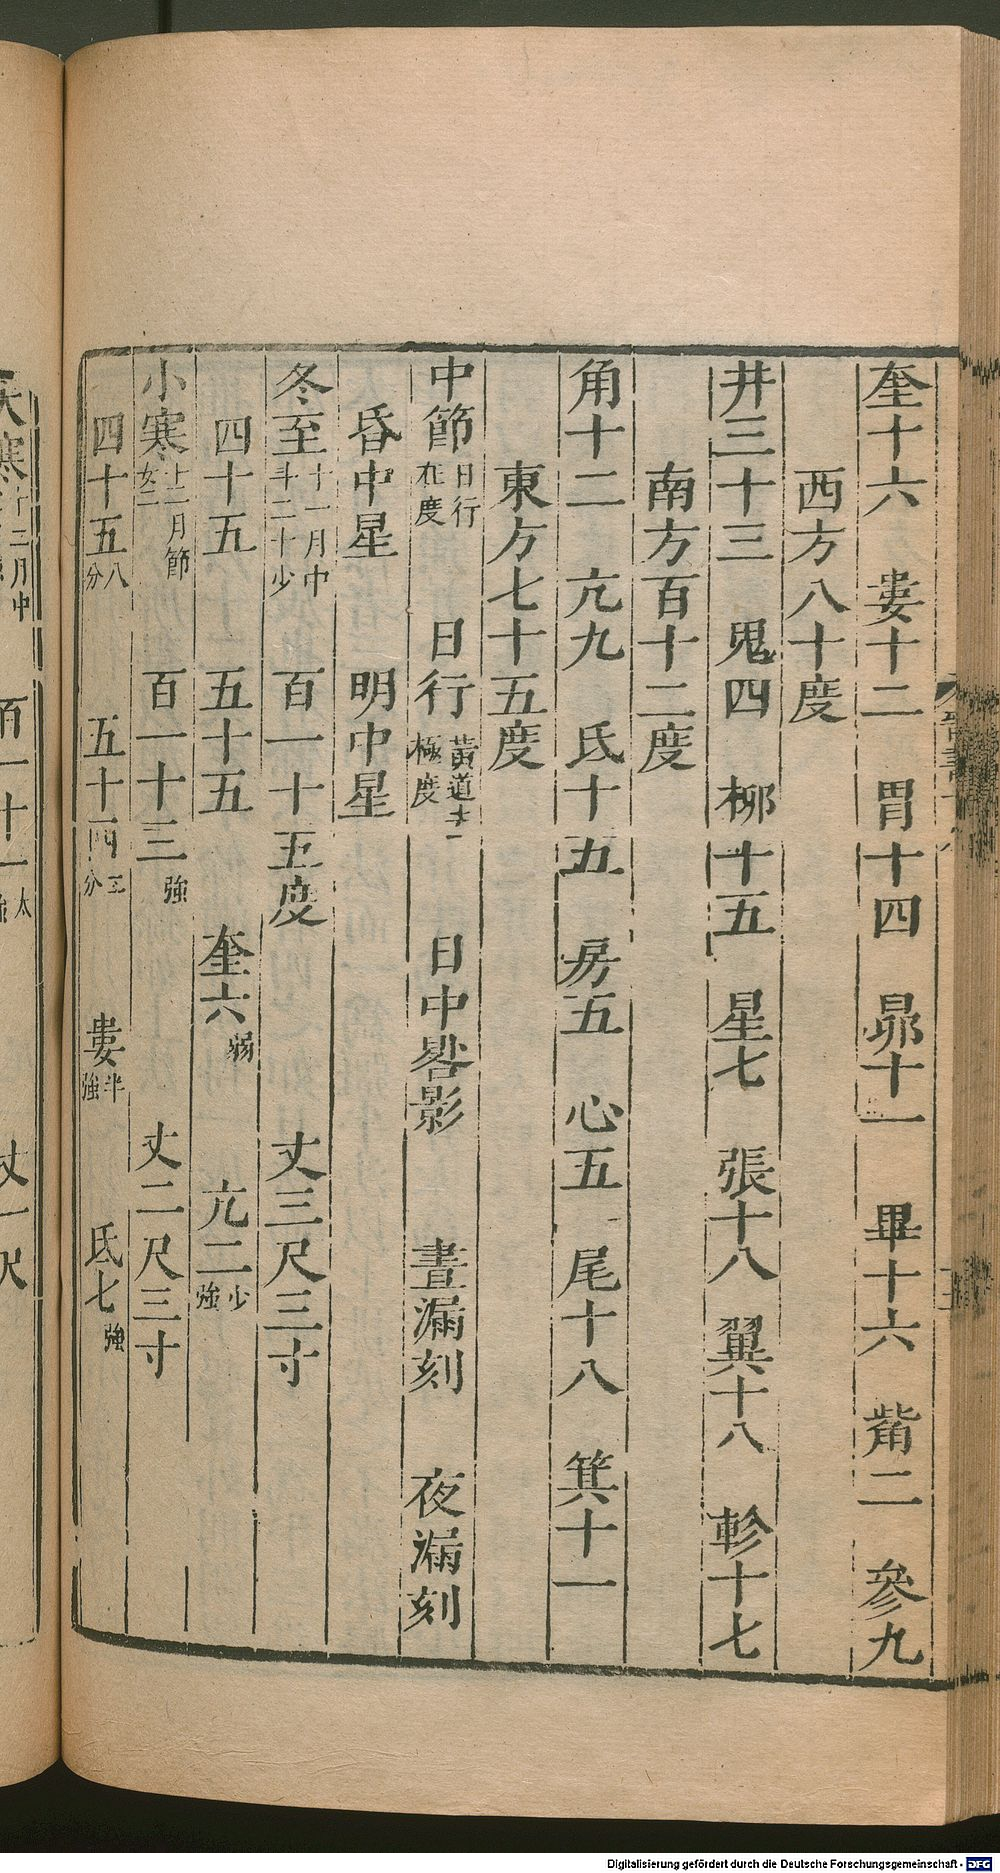 奎十六 婁十二 胃十四 昴十一 畢十六 觜二 參九
西方八十度
井三十三 鬼四 柳十五 星七 張十八 翼十八 軫十七
南方百十二度
角十二 亢九 氐十五 房五 心五 尾十八 箕十一
東方七十五度
中節 日行在度 日行 黃道去極度 日中晷影 晝漏刻 夜漏刻
昏中星 明中星
冬至 十一月中 斗二十少 百一十五度 丈三尺三寸
四十五 五十五 奎六弱 亢二少強
小寒 十二月節 女二 百一十三強 丈二尺三寸
四十五八分 五十四三分 婁半強 氐七強
十二月中 百一十一太 丈一尺
Digitalisierung gefördert durch die Deutsche Forschungsgemeinschaft - DFG